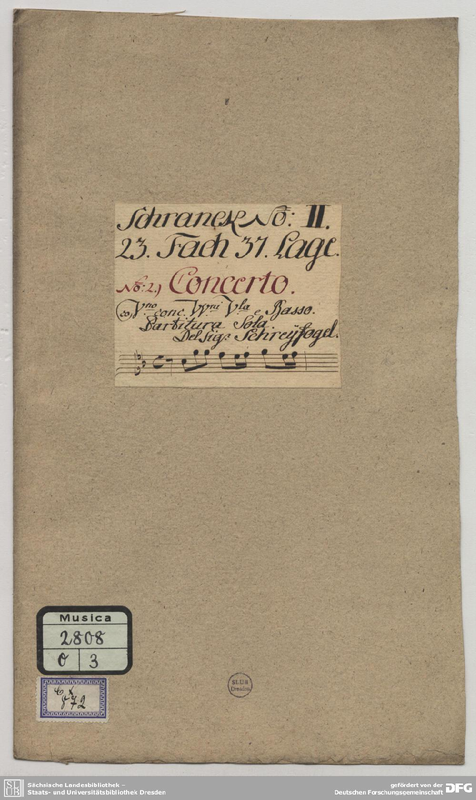 Schranck No: II.
23. Fach 37. Lage.
No: 2.) Concerto.
co Vno conc. VVni Vla e Basso.
Partitura Sola
Del Sigr Schreyfogel.
Musica
2808
O 3
Cx
872
SLUB
Dresden
Sächsische Landesbibliothek -
Staats- und Universitätsbibliothek Dresden
gefördert von der
Deutschen Forschungsgemeinschaft DFG